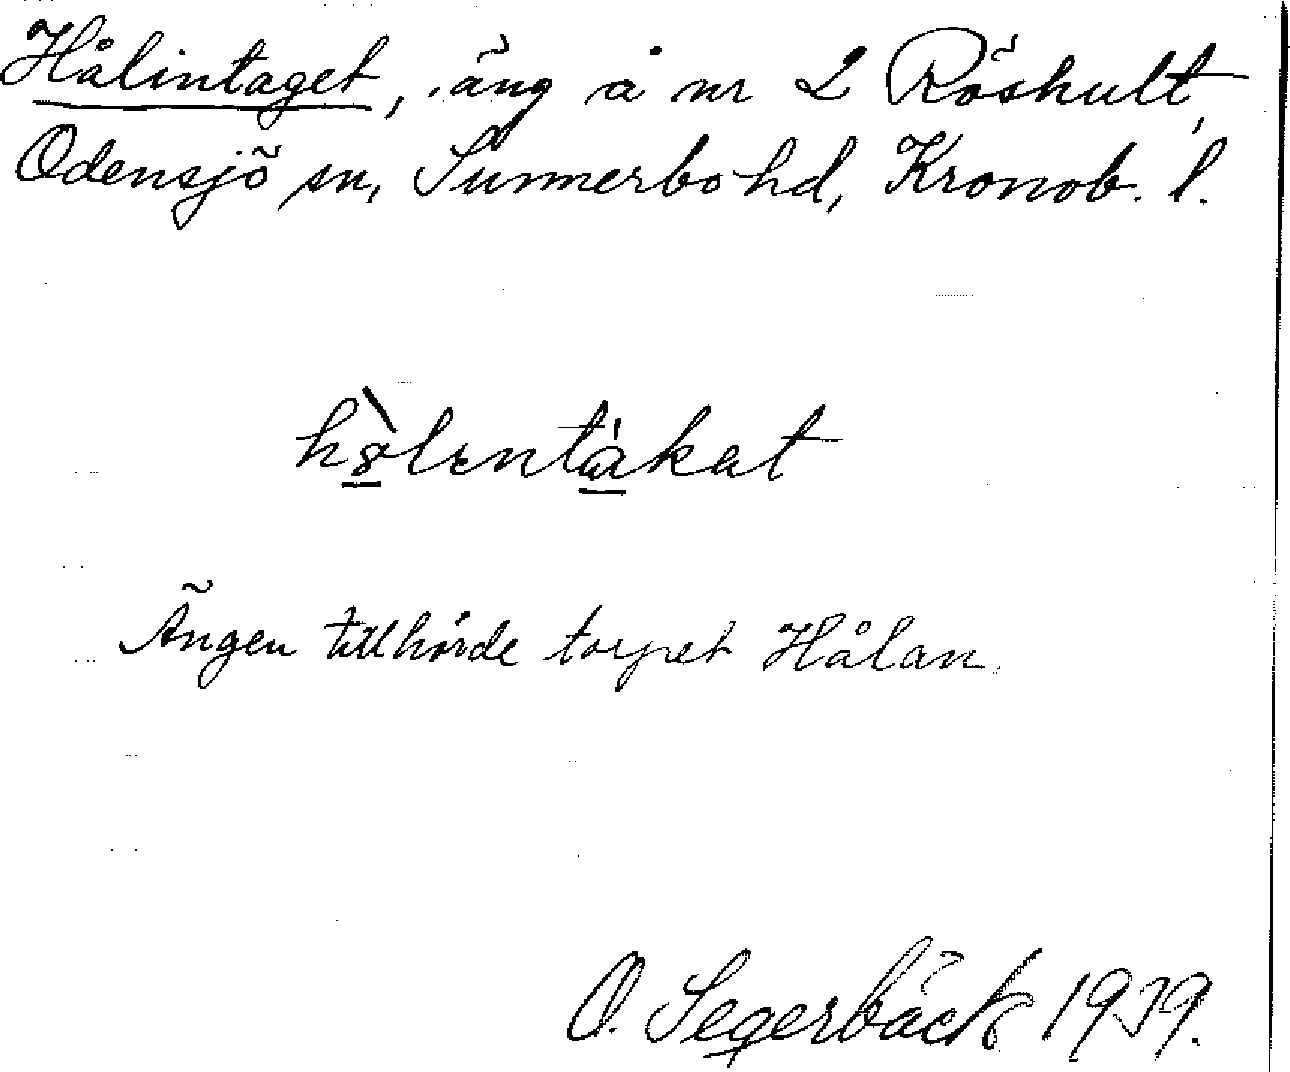 Hålintaget, äng å nr 2 Röshult,
Odensjö sn, Sunnerbo hd, Kronob. l.
hòlentákat
Ängen tillhörde torpet Hålan.
O. Segerbäck 1939.